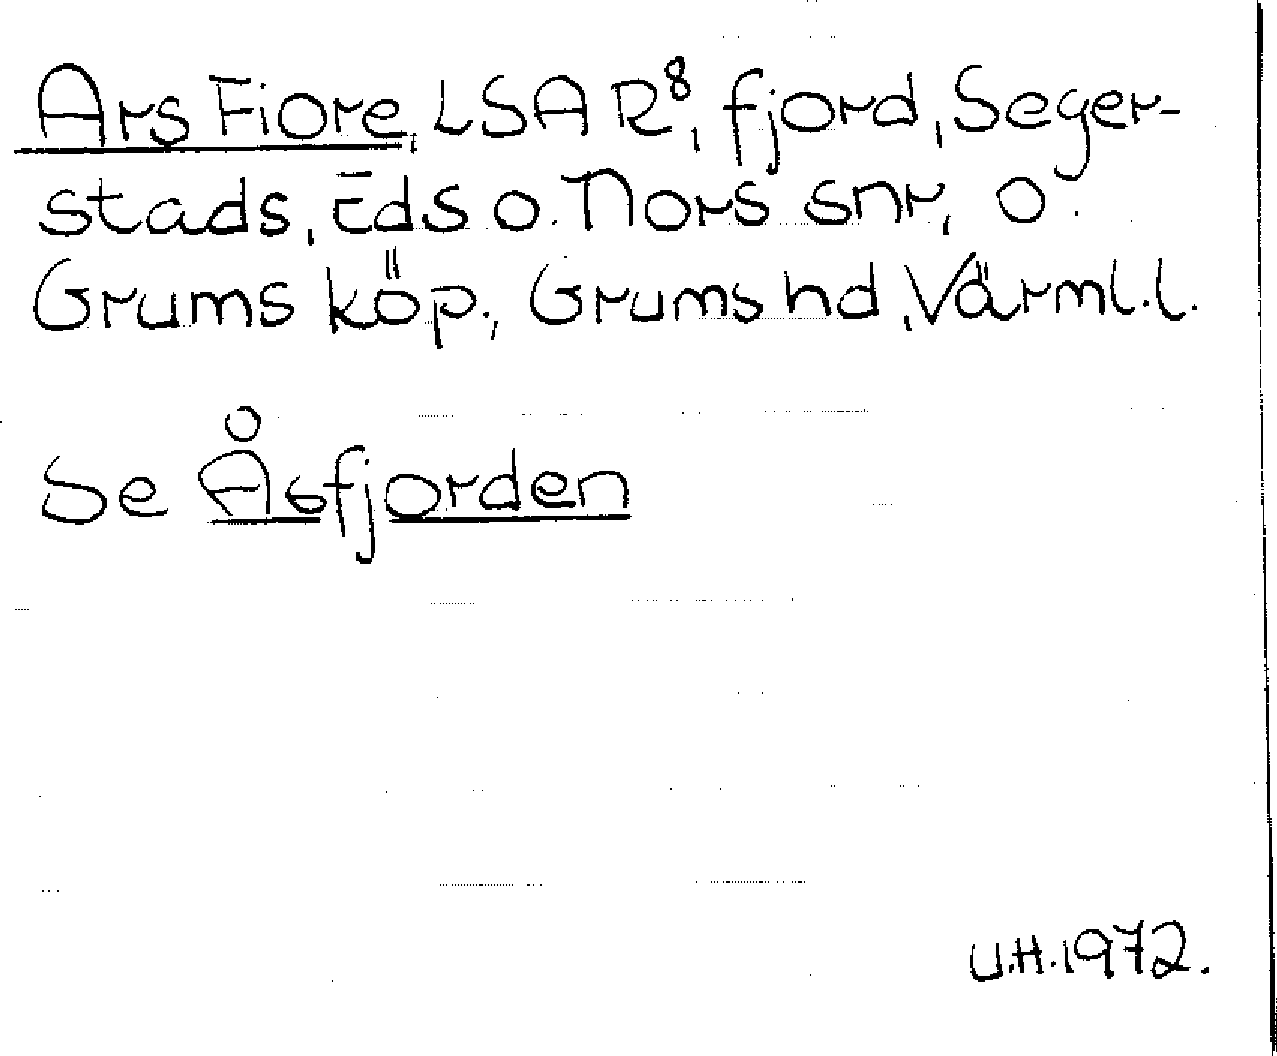 Ars Fiore, LSA R⁸, fjord, Seger-
stads, Eds o. Nors snr, o
Grums köp., Grums hd, Värml.l.
Se Åsfjorden
U.H. 1972.